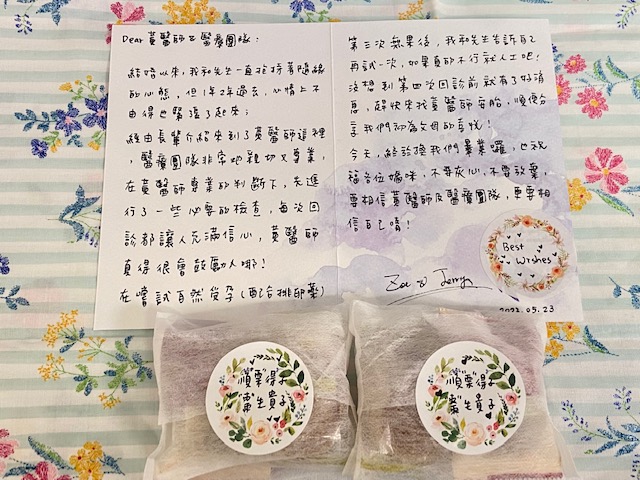 Dear 黃醫師&醫療團隊：
結婚以來，我和先生一直抱持著隨緣
的心態，但1年2年過去，心情上不
由得也緊張了起來；
經由長輩介紹來到了黃醫師這裡
，醫療團隊非常地親切又專業，
在黃醫師專業的判斷下，先進
行了一些必要的檢查，每次回
診都讓人充滿信心，黃醫師
真得很會鼓勵人哪！
在嘗試自然受孕（配合排卵藥）
第三次無果後，我和先生告訴自己
再試一次，如果真的不行就人工吧！
沒想到第四次回診前就有了好消
息，趕快來找黃醫師安胎，順便分
享我們初為父母的喜悅！
今天，終於換我們畢業囉，也祝
福各位媽咪，不要灰心，不要放棄，
要相信黃醫師及醫療團隊，更要相
信自己唷！
Best
Wishes
Zoe & Jerry
2022.05.23
"順"栗"得子
棗生貴子
"順"栗"得子
棗生貴子